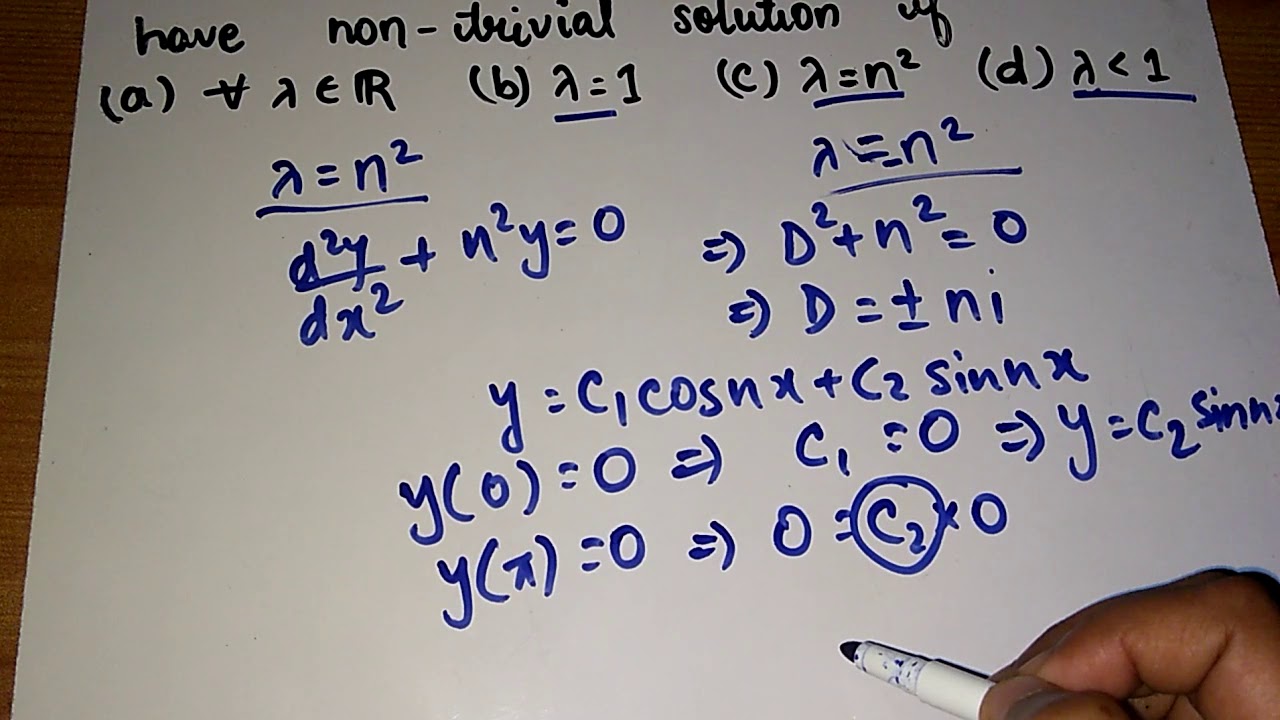 have non-trivial solution if
(a) ∀ λ ∈ ℝ (b) λ = 1 (c) λ = n² (d) λ < 1
λ = n²
d²y/dx² + n²y = 0
λ = n²
⇒ D² + n² = 0
⇒ D = ± ni
y = C₁ cosnx + C₂ sinnx
y(0) = 0 ⇒ C₁ = 0 ⇒ y = C₂ sinnx
y(π) = 0 ⇒ 0 = C₂ × 0